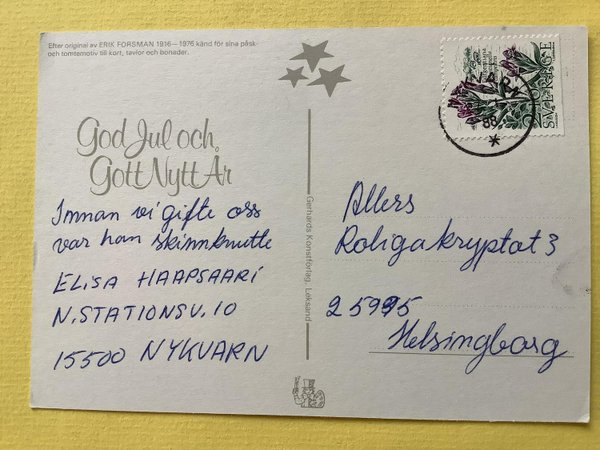 Efter original av ERIK FORSMAN 1916—1976 känd för sina påsk-
och tomtemotiv till kort, tavlor och bonader.
God Jul och
Gott Nytt År
Innan vi gifte oss
var han skinnknutte
ELiSA HAAPSAARi
N.STATIONSV.10
15500 NYKVARN
Gerhards Konstförlag, Leksand
SVERIGE
88
Allers
Roligakryptot 3
25995
Helsingborg